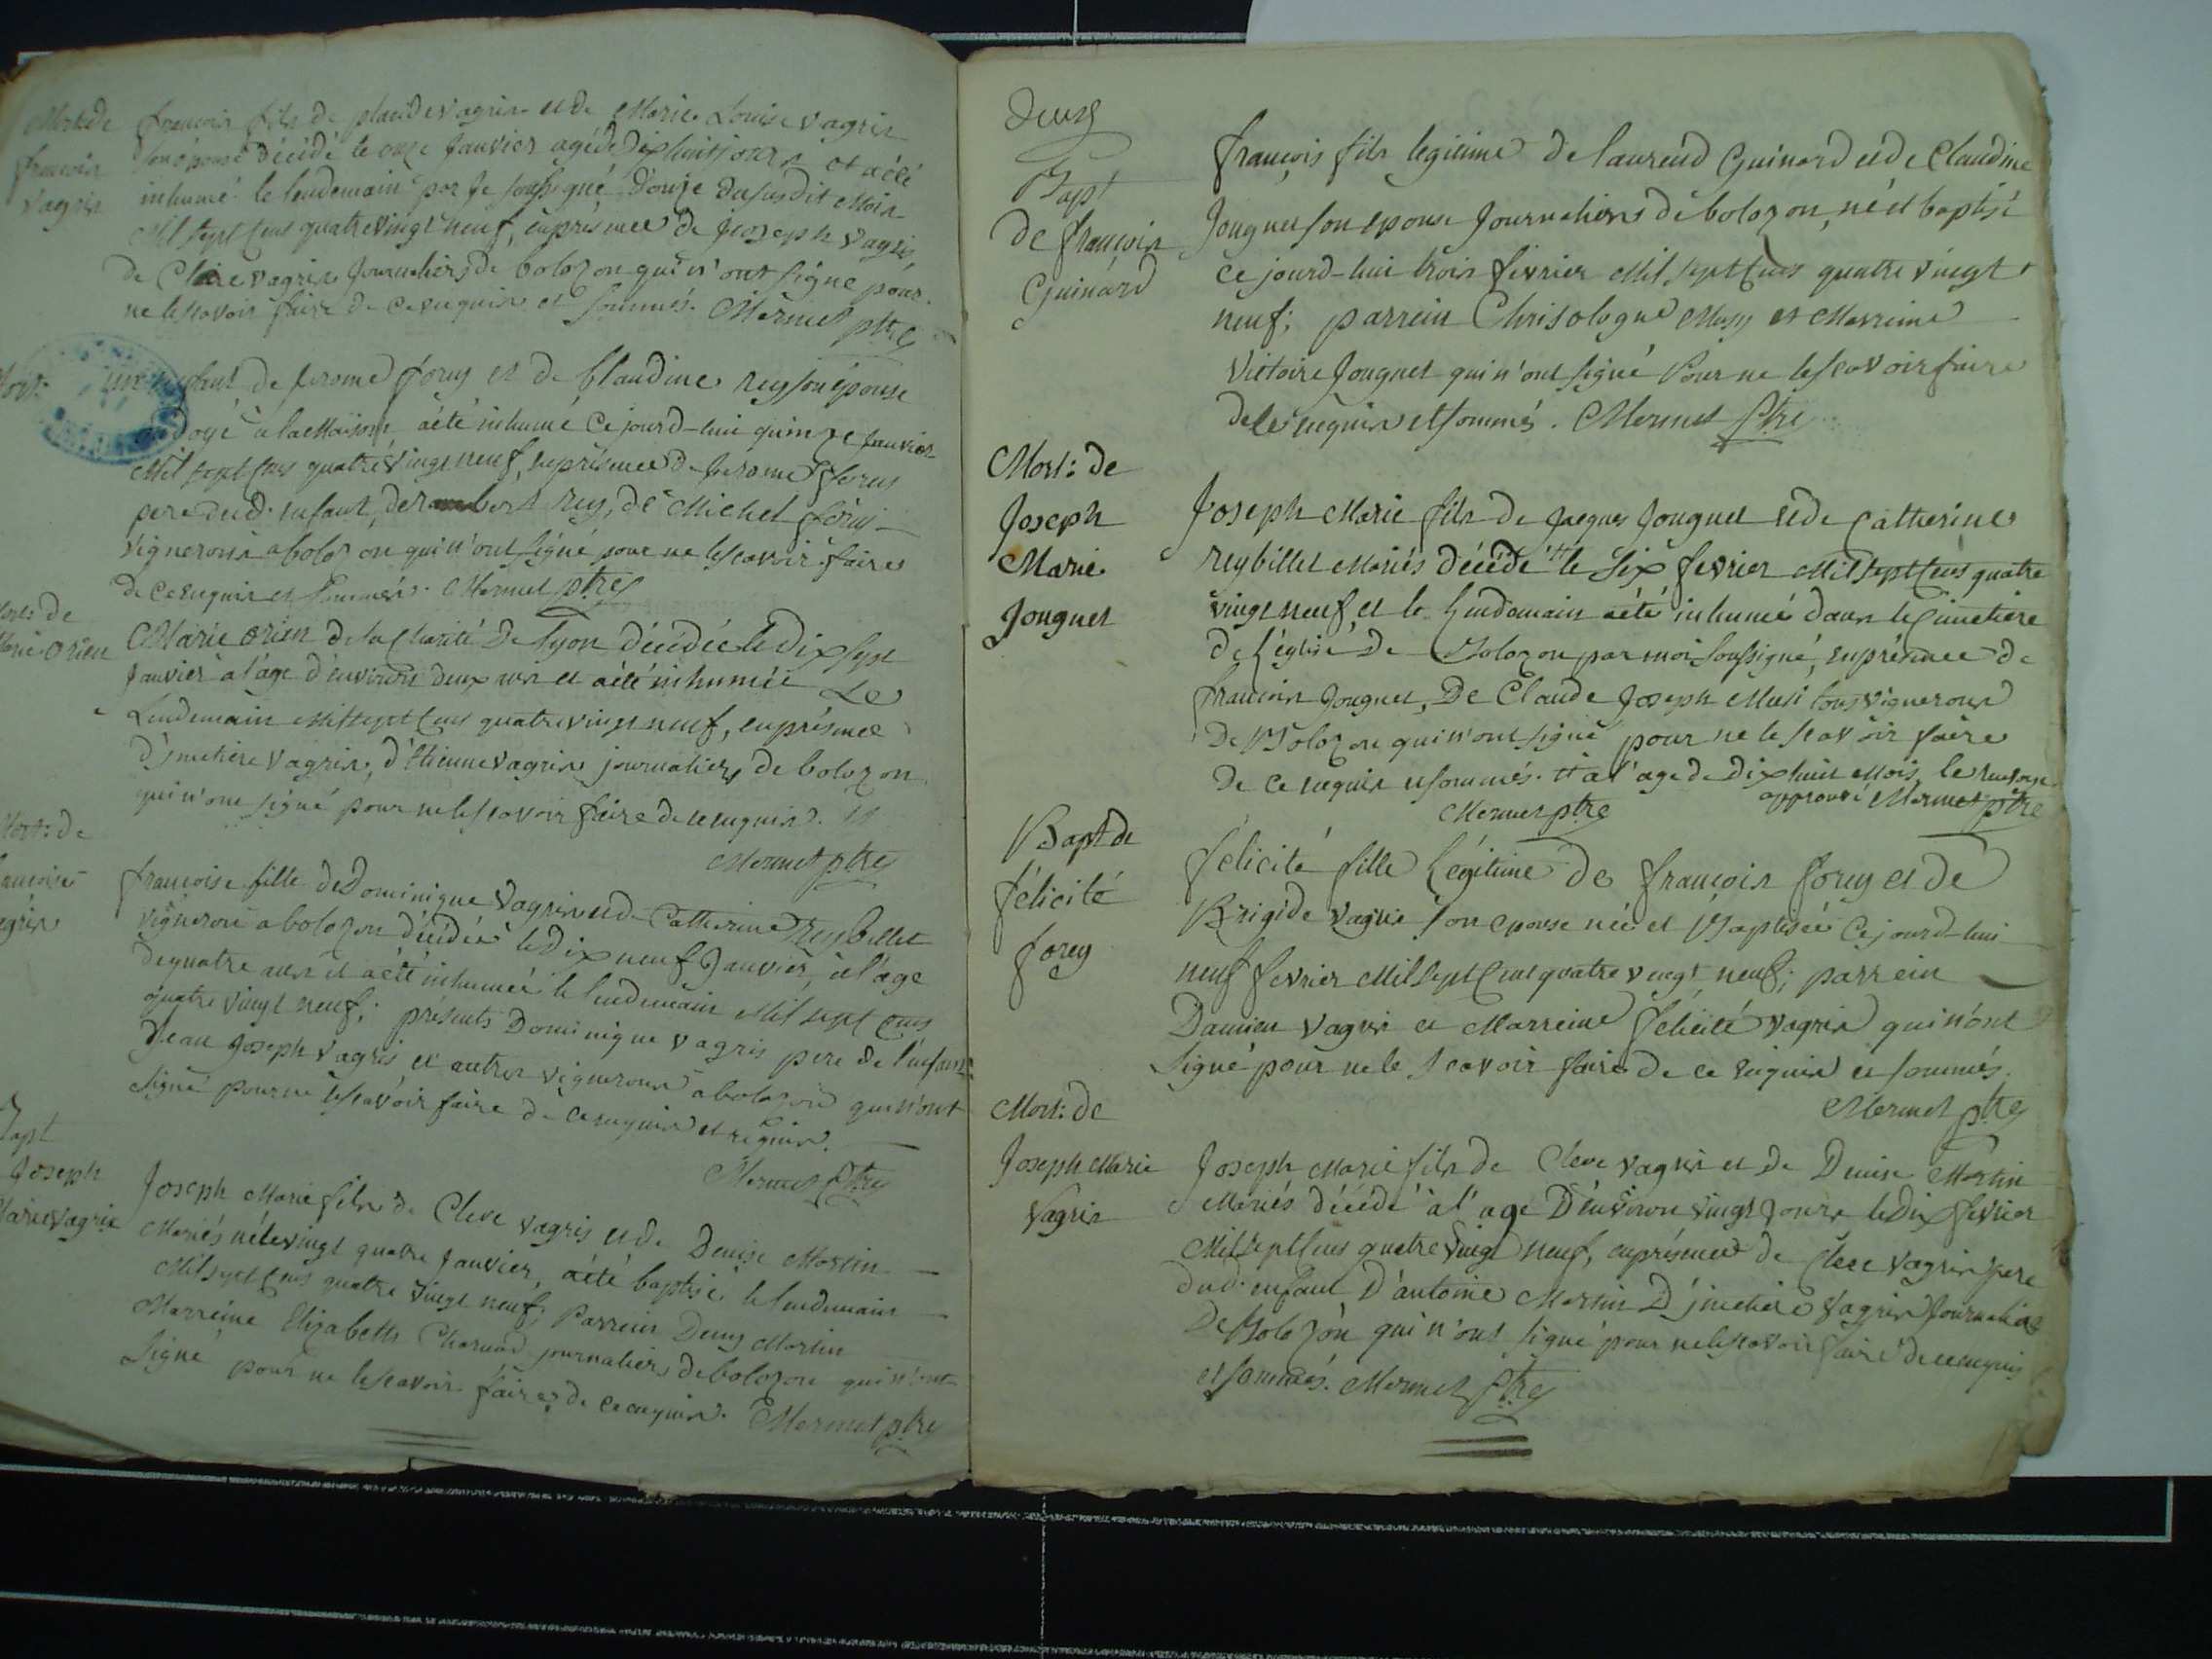 Mort de
françois
Vagris
françois fils de placide vagris et de Marie Louise vagris
son épouse décédé le onze Janvier agé de dix huit jours et a été
inhumé le lendemain par Je soussigné douze du susdit Mois
Mil sept cens quatre vingt neuf, en présence de Joseph vagris
de Claire vagris Journaliers de bolozon qui n'ont signé pour
ne le scavoir faire de ce enquis et sommés. Mermet ptre
Mort:
un enfant de Jerome forey et de Claudine rey son épouse
ondoyé a la Maison, a été inhumé Ce jourd-hui quinze Janvier
Mil sept cens quatre vingt neuf, en présence de Jerome forey
pere dud. enfant, de rambert rey, de Michel forey
vignerons a bolozon qui n'ont signé pour ne le scavoir faire
de ce enquis et sommés. Mermet ptre
Mort de
Marie Orien
Marie orien de la Charité de Lyon décédée le dix sept
Janvier a l'age d'environ deux ans et a été inhumée Le
Lendemain Mil sept cens quatre vingt neuf, en présence
d'imetiere Vagris, d'Etienne vagris journaliers de bolozon
qui n'ont signé pour ne le scavoir faire de ce enquis.
Mermet ptre
Mort: de
françoise
vagris
françoise fille de Dominique Vagris et de Catherine Reybillet
vigneron a bolozon décédée le Dix neuf Janvier, a l'age
de quatre ans et a été inhumée le lendemain Mil sept cens
quatre vingt neuf; présents Dominique vagris pere de l'enfant
Jean Joseph vagris et autres vignerons a bolozon qui n'ont
signé pour ne le scavoir faire de ce enquis et requis.
Mermet ptre
Bapt
Joseph
Marie Vagris
Joseph Marie fils de Cleve vagris et de Denise Martin
Mariés né le vingt quatre Janvier, a été baptisé le lendemain
Mil sept cens quatre vingt neuf; Parrein Denis Martin
Marreine Elizabeth journaliers de bolozon qui n'ont
signé pour ne le scavoir faire, de ce enquis. Mermet ptre
deux
Bapt
de françois
Guinard
françois fils legitime de laurend Guinard et de Claudine
Jouguet son epouse Journaliers de bolozon, né et baptisé
ce jourd-hui trois fevrier Mil sept cens quatre vingt
neuf; parrein Chrisologue Musy et Marreine
Victoire Jouguet qui n'ont signé Pour ne le scavoir faire
de ce enquis et sommés. Mermet ptre
Mort: de
Joseph
Marie
Jouguet
Joseph Marie fils de Jacques Jouguet et de Catherine
reybillet Mariés décédé # le six fevrier Mil sept cens quatre
vingt neuf, et le lendemain a été inhumé dans le Cimetiere
de l'église de Bolozon par moi soussigné, en présence de
francois Jouguet, De Claude Joseph Musi tous vignerons
De Bolozon qui n'ont signé pour ne le scavoir faire
De ce enquis et sommés. # a l'age de dix huit Mois le renvoye
approuvé Mermet ptre
Mermet ptre
Bapt de
félicité
forey
félicité fille Légitime de françois forey et de
Brigide vagris son epouse née et Baptisée Ce jourd-hui
neuf fevrier Mil sept cens quatre vingt neuf; parrein
Damien vagris et Marreine félicité vagris qui n'ont
signé pour ne le scavoir faire de ce enquis et sommés.
Mermet ptre
Mort: de
Joseph Marie
Vagris
Joseph Marie fils de Cleve vagris et de Denise Martin
Mariés décédé a l'age D'environ vingt Jours le Dix fevrier
Mil sept cens quatre vingt neuf, en présence de Cleve vagris pere
dud. enfant D'antoine Martin D'jmetiere Vagris Journaliers
De Bolozon qui n'ont signé pour ne le scavoir faire de ce enquis
et sommés. Mermet ptre